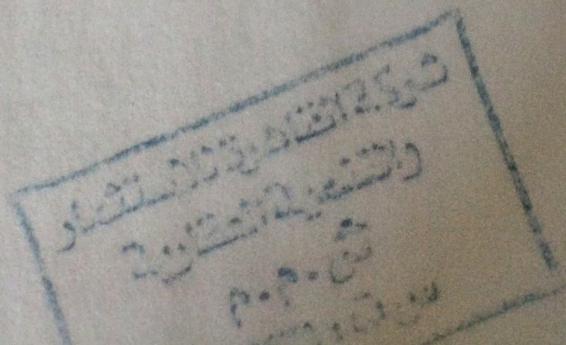 شركة القاهرة للاستثمار
والتنمية العقارية
ش.م.م
س.ت